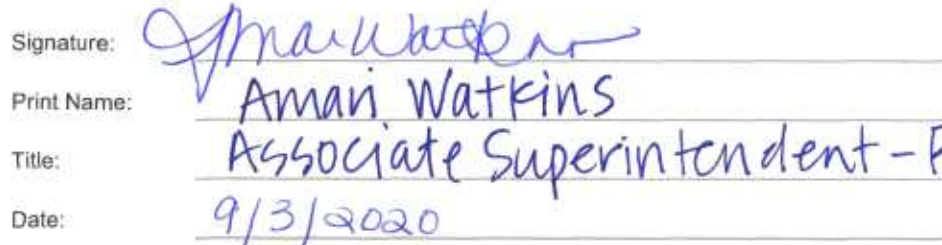 Signature: Amari Watkins
Print Name: Amari Watkins
Title: Associate Superintendent-F
Date: 9/3/2020